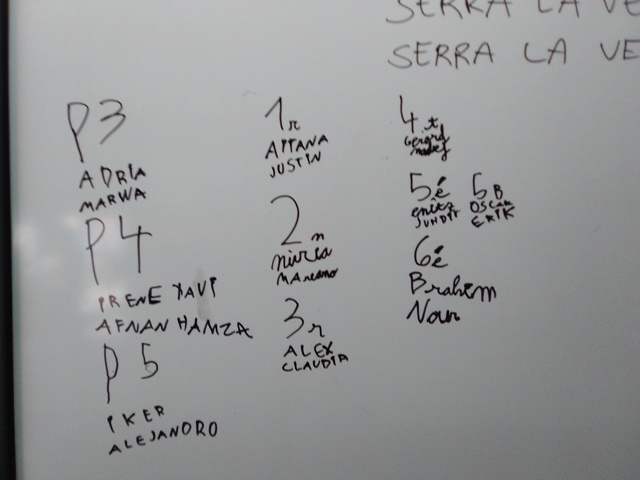 SERRA LA VE
SERRA LA VE
P3
ADRIA
MARWA
P4
IRENE XAVI
AFNAN HAMZA
P5
IKER
ALEJANDRO
1r
AITANA
JUSTIN
2n
NURIA
MARIANO
3r
ALEX
CLAUDIA
4t
Gerard
5è
JUNDIT
5B
OSCAR
ERIK
6è
Brahim
Nour